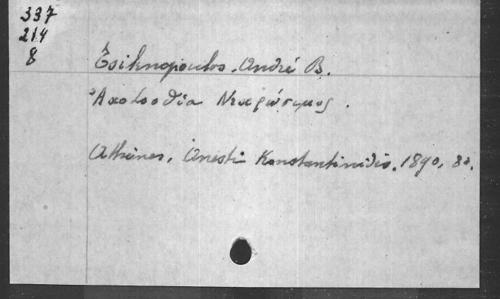 337
214
8
Tsiknopoulos, André B.
Ἀκολουθία Νεκρώσιμος.
Athènes, Anesti Konstantinidis. 1890, 8o.